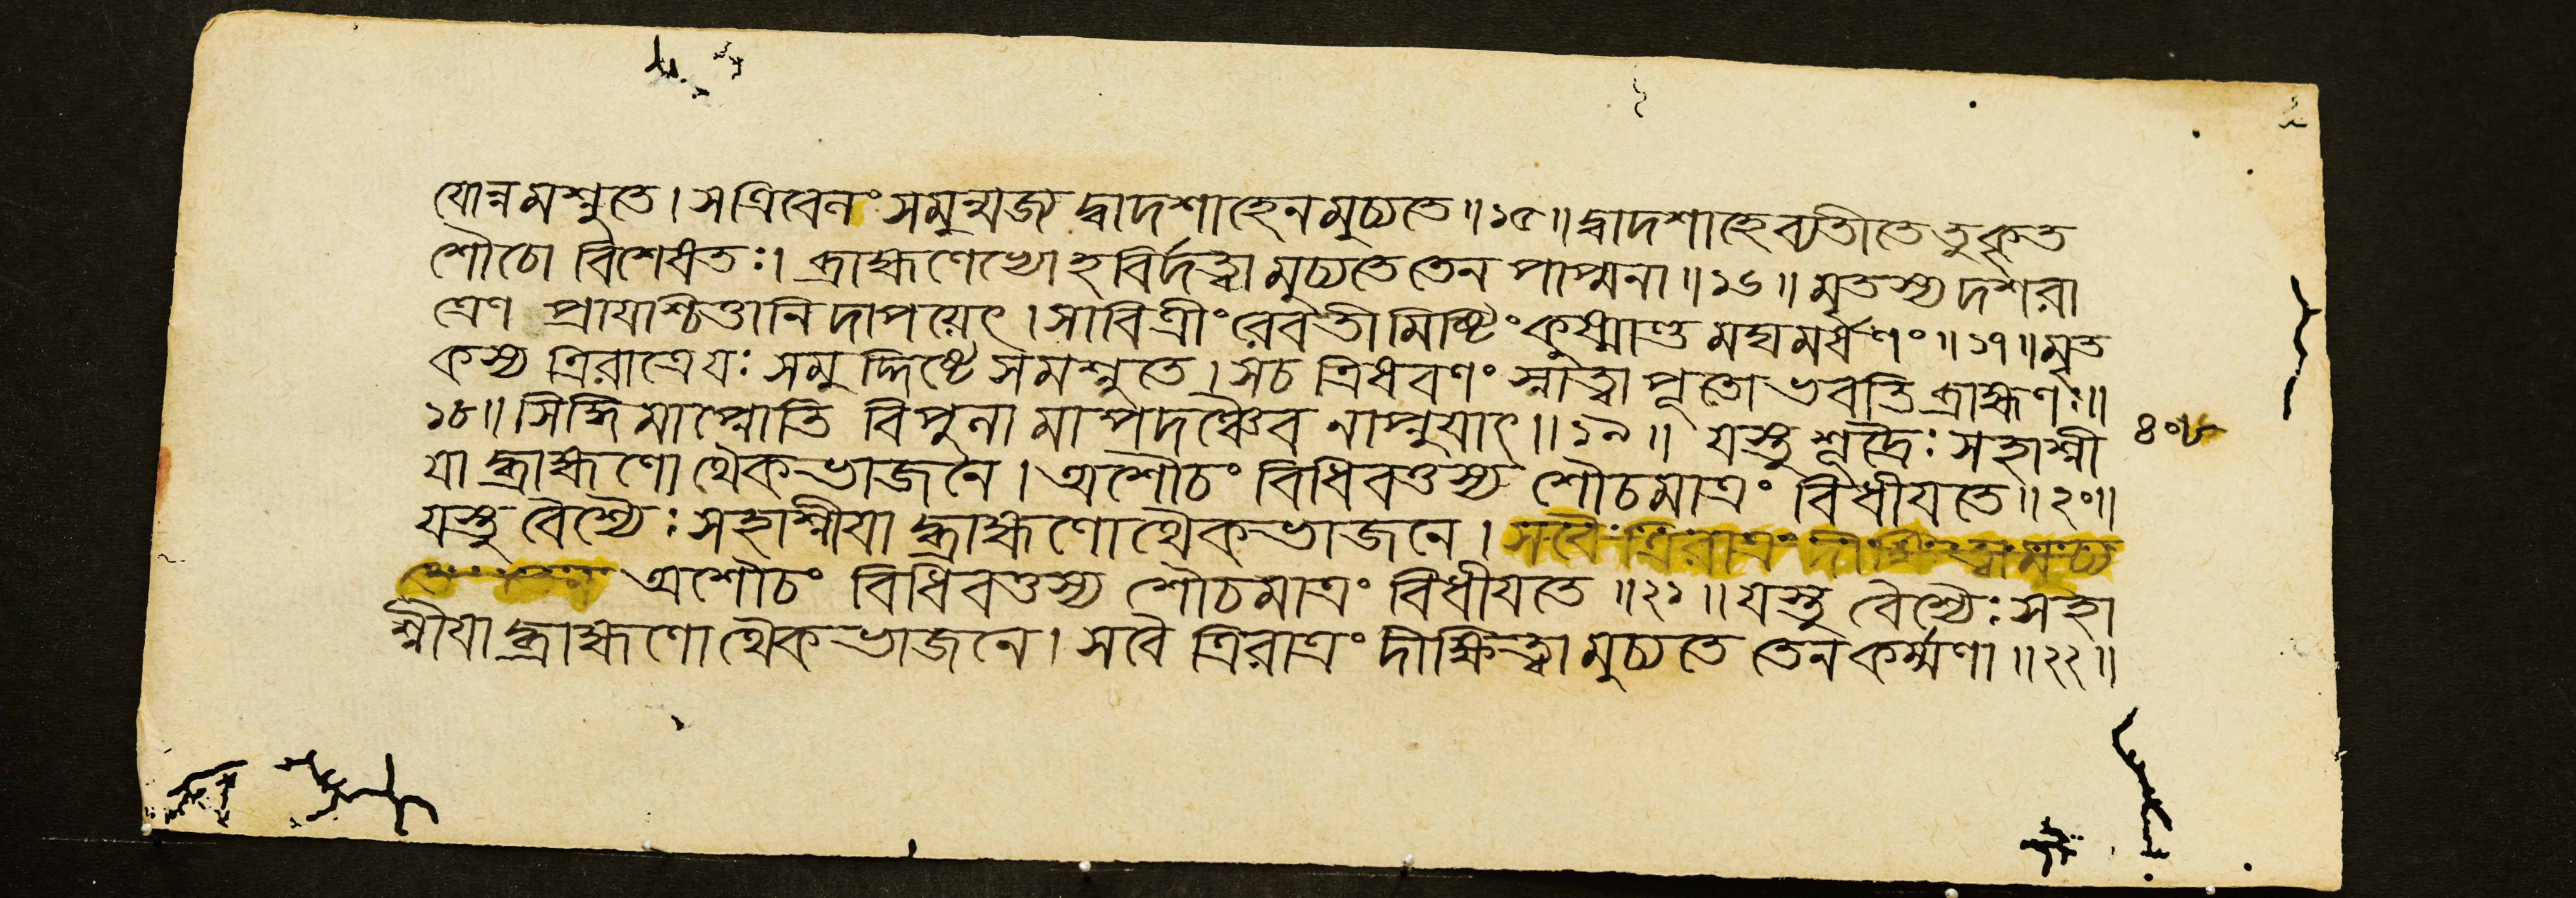 যোন্নমশ্নুতে। সত্রিবেনং সমুন্মজ্য দ্বাদশাহেনমুচ্যতে॥১৫॥ দ্বাদশাহেব্যতীতেতুকৃত
শৌচো বিশেষতঃ। ব্রাহ্মণেভ্যোহবির্দত্ত্বামুচ্যতেতেন পাপ্মনা॥১৬॥ মৃতস্যদশরা
ত্রেণ প্রাযশ্চিত্তানিদাপয়েৎ। সাবিত্রীংরেবতীমিষ্টিংকুষ্মাণ্ডমঘমর্ষণং॥১৭॥ মৃত
কস্য ত্রিরাত্রেযঃ সমুদ্দিষ্টে সমশ্নুতে। সচ ত্রিষবণং স্নাত্বা পূতোভবতিব্রাহ্মণঃ॥
১৮॥ সিদ্ধিমাপ্নোতি বিপুনামাপদঞ্চৈব নাপ্নুযাৎ॥১৯॥ যস্তুশূদ্রৈঃ সহাশ্নী ৪০৮
যাদ্ব্রাহ্মণোথৈকভাজনে। অশৌচং বিধিবত্তস্য শৌচমাত্রং বিধীযতে॥২০॥
যস্তুবৈশ্যৈঃ সহাশ্নীযাদ্ব্রাহ্মণোথৈকভাজনে। সবৈ ত্রিরাত্রং দীক্ষিত্বামুচ্য
তে অশৌচং বিধিবত্তস্য শৌচমাত্রং বিধীযতে॥২১॥ যস্তু বৈশ্যৈঃ সহা
শ্নীযাদ্ব্রাহ্মণোথৈকভাজনে। সবৈ ত্রিরাত্রং দীক্ষিত্বামুচ্যতে তেনকর্ম্মণা॥২২॥